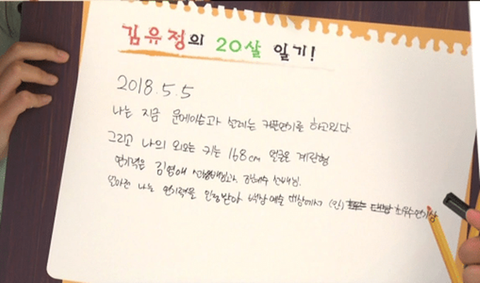 김유정의 20살 일기!
2018.5.5
나는 지금 윤제이슨과 설레는 커플연기를 하고있다
그리고 나의 외모는 키는 168cm 얼굴은 계란형
연기력은 김영애 선배님과 김혜수 선배님.
또 나는 연기력을 인정받아 백상예술대상에서 (인) 최우수연기상